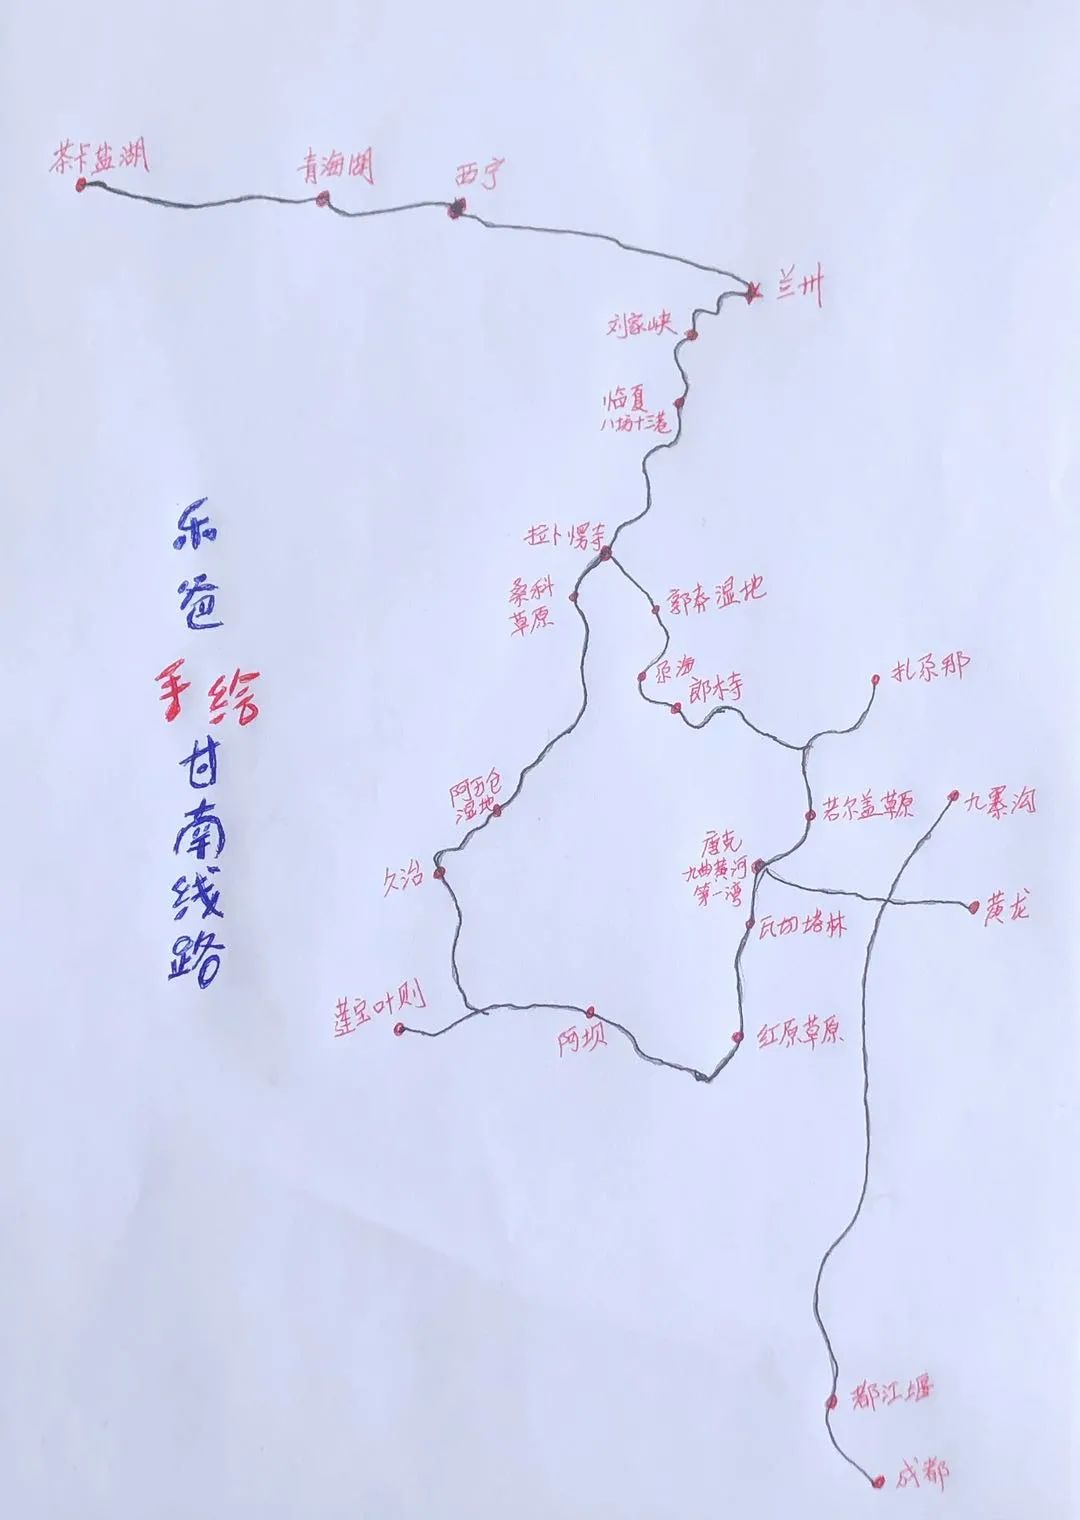 茶卡盐湖
青海湖
西宁
兰州
刘家峡
临夏
八坊十三巷
拉卜愣寺
桑科
草原
郭莽湿地
尕海
郎木寺
扎尕那
阿万仓
湿地
若尔盖草原
九寨沟
唐克
九曲黄河
第一湾
久治
黄龙
瓦切塔林
莲宝叶则
阿坝
红原草原
都江堰
成都
乐爸手绘甘南线路